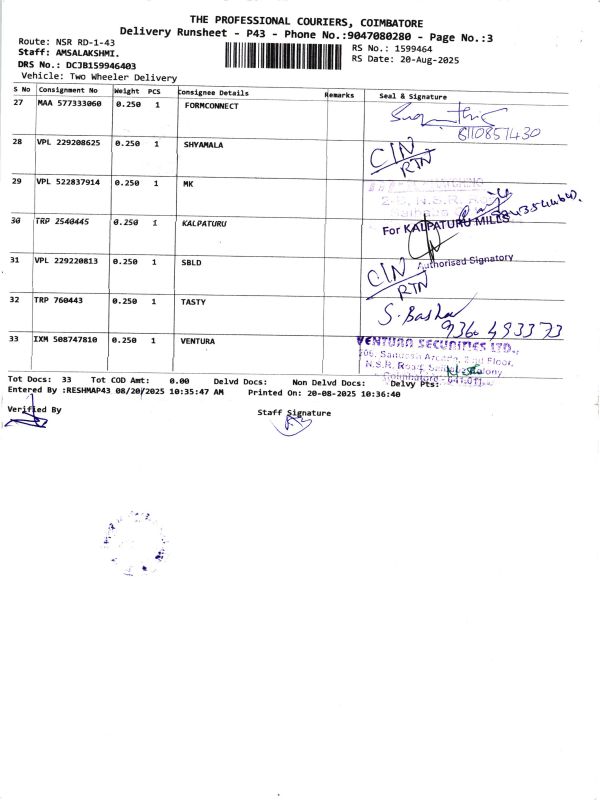 THE PROFESSIONAL COURIERS, COIMBATORE
Delivery Runsheet - P43 - Phone No.:9047080280 - Page No.:3
Route: NSR RD-1-43
Staff: AMSALAKSHMI.
RS No.: 1599464
DRS No.: DCJB159946403
RS Date: 20-Aug-2025
Vehicle: Two Wheeler Delivery
S No Consignment No Weight PCS Consignee Details Remarks Seal & Signature
27 MAA 577333060 0.250 1 FORMCONNECT
8110851430
28 VPL 229208625 0.250 1 SHYAMALA CIN
RTN
29 VPL 522837914 0.250 1 MK
30 TRP 2540445 0.250 1 KALPATURU For KALPATURU MILLS
Authorised Signatory
31 VPL 229220813 0.250 1 SBLD CIN
RTN
32 TRP 760443 0.250 1 TASTY S. Basha
9360 493373
33 IXM 508747810 0.250 1 VENTURA VENTURA SECURITIES LTD.,
N.S.R. Road,
Coimbatore - 641 011.
Tot Docs: 33 Tot COD Amt: 0.00 Delvd Docs: Non Delvd Docs: Delvy Pts:
Entered By :RESHMAP43 08/20/2025 10:35:47 AM Printed On: 20-08-2025 10:36:40
Verified By Staff Signature